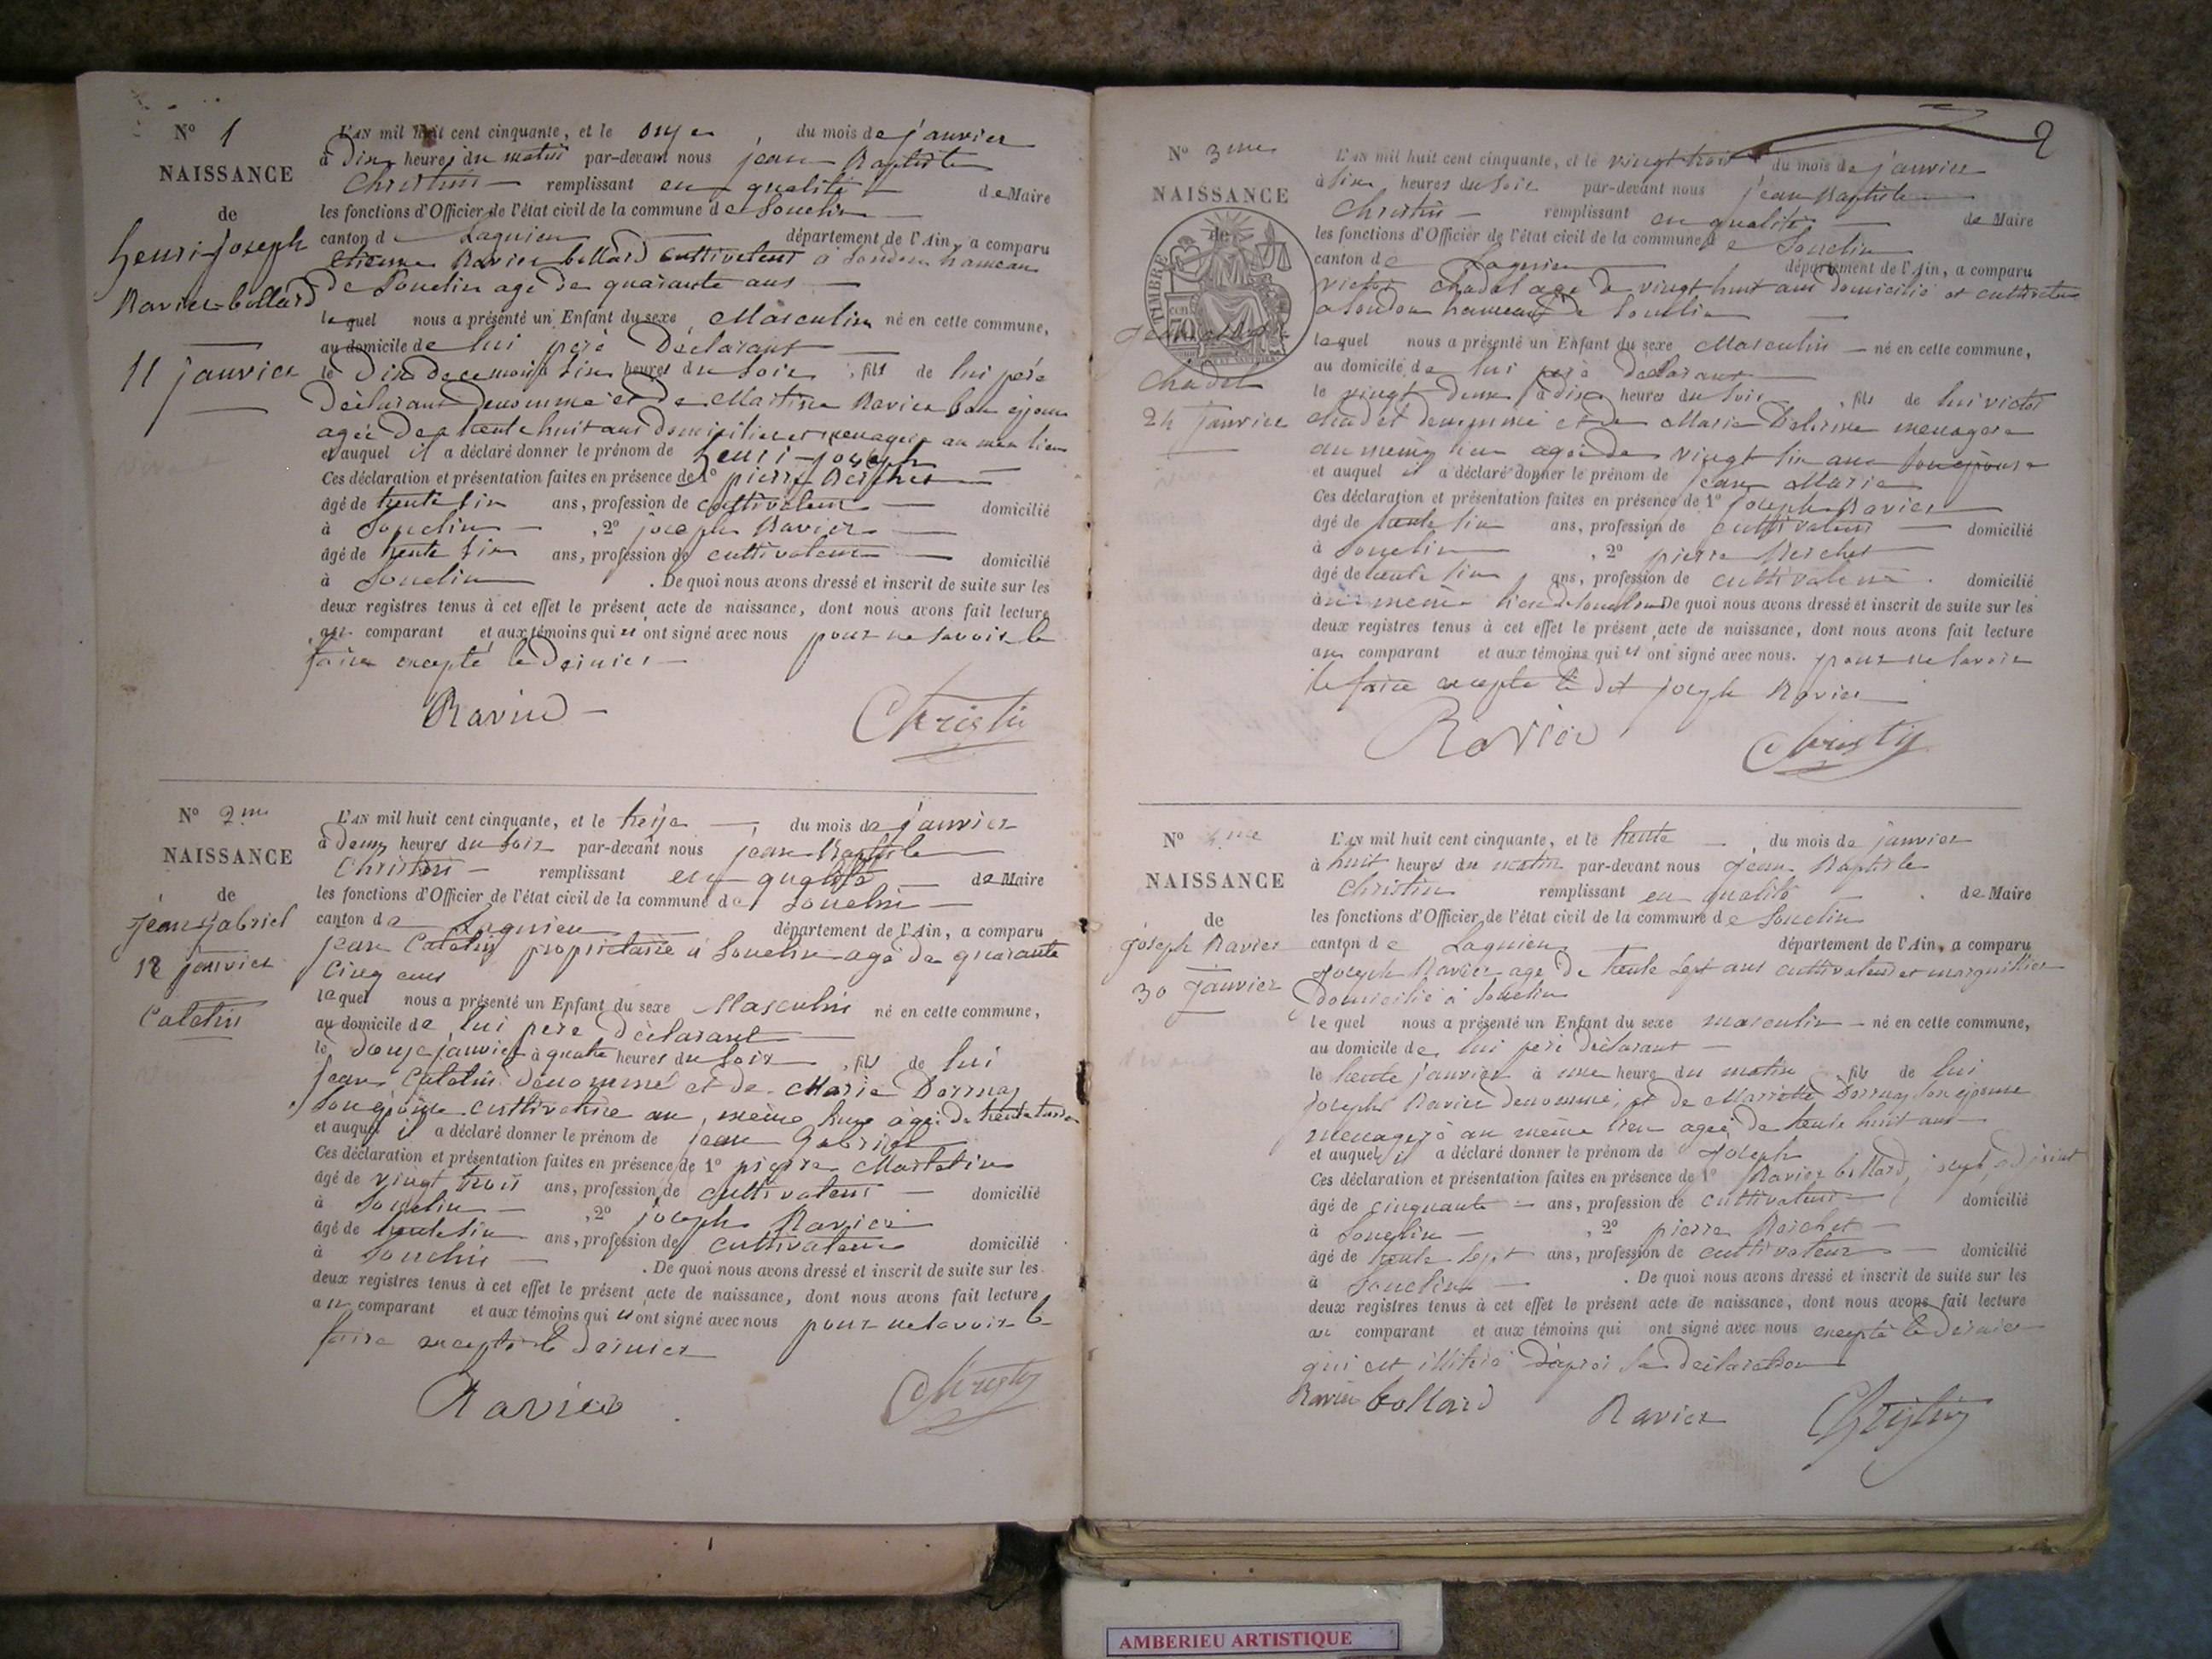 N° 1
NAISSANCE
de
henri-Joseph
Ravier-bollard
11 janvier
L'AN mil huit cent cinquante, et le onze, du mois de janvier
à Dix heures du matin par-devant nous jean Baptiste
Christin remplissant en qualité de Maire
les fonctions d'Officier de l'état civil de la commune de Souclin
canton de Lagnieu département de l'Ain, a comparu
etienne Ravier bollard cultivateur a Soudon hameau
de Souclin agé de quarante ans
lequel nous a présenté un Enfant du sexe Masculin né en cette commune,
au domicile de lui père Declarant
le Dix de ce mois à six heures du soir, fils de lui père
Déclarant denommé et de Martine Ravier son épouse
agée de trente huit ans domiciliée et menagere au meme lieu
et auquel il a déclaré donner le prénom de henri-joseph
Ces déclaration et présentation faites en présence de 1° pierre Reichet
âgé de trente six ans, profession de cultivateur domicilié
à Souclin, 2° joseph Ravier
âgé de trente six ans, profession de cultivateur domicilié
à Souclin. De quoi nous avons dressé et inscrit de suite sur les
deux registres tenus à cet effet le présent acte de naissance, dont nous avons fait lecture
au comparant et aux témoins qui n'ont signé avec nous pour ne savoir le
faire excepté le dernier
Ravier Christin
N° 2me
NAISSANCE
de
jean gabriel
12 janvier
Catelin
L'AN mil huit cent cinquante, et le treize, du mois de janvier
à deux heures du soir par-devant nous jean Baptiste
Christin remplissant en qualité de Maire
les fonctions d'Officier de l'état civil de la commune de Souclin
canton de Lagnieu département de l'Ain, a comparu
jean Catelin propriétaire à Souclin agé de quarante
cinq ans
lequel nous a présenté un Enfant du sexe Masculin né en cette commune,
au domicile de lui père déclarant
le douze janvier à quatre heures du soir, fils de lui
jean Catelin dénommé et de Marie Dornay
son épouse cultivatrice au même lieu agée de trente
et auquel il a déclaré donner le prénom de jean Gabriel
Ces déclaration et présentation faites en présence de 1° pierre Martelin
âgé de vingt trois ans, profession de cultivateur domicilié
à Souclin, 2° joseph Ravier
âgé de trente six ans, profession de cultivateur domicilié
à Souclin. De quoi nous avons dressé et inscrit de suite sur les
deux registres tenus à cet effet le présent acte de naissance, dont nous avons fait lecture
au comparant et aux témoins qui n'ont signé avec nous pour ne savoir le
faire excepté le dernier
Ravier Christin
2
N° 3me
NAISSANCE
de
TIMBRE
70
Chadel
24 janvier
L'AN mil huit cent cinquante, et le vingt trois du mois de janvier
à six heures du soir par-devant nous jean Baptiste
Christin remplissant en qualité de Maire
les fonctions d'Officier de l'état civil de la commune de Souclin
canton de Lagnieu département de l'Ain, a comparu
victor chadel agé de vingt huit ans domicilié et cultivateur
a Soudon hameau de Souclin
lequel nous a présenté un Enfant du sexe Masculin né en cette commune,
au domicile de lui père déclarant
le vingt deux à dix heures du soir, fils de lui victor
chadel denommé et de Marie menagere
au même lieu agée de vingt six ans son épouse
et auquel il a déclaré donner le prénom de jean Marie
Ces déclaration et présentation faites en présence de 1° joseph Ravier
âgé de trente six ans, profession de cultivateur domicilié
à Souclin, 2° pierre Reichet
âgé de trente six ans, profession de cultivateur. domicilié
au même lieu de Souclin De quoi nous avons dressé et inscrit de suite sur les
deux registres tenus à cet effet le présent acte de naissance, dont nous avons fait lecture
au comparant et aux témoins qui n'ont signé avec nous. pour ne savoir
le faire excepté le dit joseph Ravier
Ravier Christin
N° 4me
NAISSANCE
de
joseph Ravier
30 janvier
L'AN mil huit cent cinquante, et le trente, du mois de janvier
à huit heures du matin par-devant nous Jean Baptiste
Christin remplissant en qualité de Maire
les fonctions d'Officier de l'état civil de la commune de Souclin
canton de Lagnieu département de l'Ain, a comparu
Joseph Ravier agé de trente sept ans cultivateur et marguillier
domicilié à Souclin
lequel nous a présenté un Enfant du sexe masculin né en cette commune,
au domicile de lui père déclarant
le trente janvier à une heure du matin, fils de lui
joseph Ravier denommé, et de Mariette Dornay son épouse
menagère au même lieu agée de trente huit ans
et auquel il a déclaré donner le prénom de Joseph
Ces déclaration et présentation faites en présence de 1° Ravier bollard, joseph, adjoint
âgé de cinquante ans, profession de cultivateur domicilié
à Souclin, 2° pierre Reichet
âgé de trente sept ans, profession de cultivateur domicilié
à Souclin. De quoi nous avons dressé et inscrit de suite sur les
deux registres tenus à cet effet le présent acte de naissance, dont nous avons fait lecture
au comparant et aux témoins qui ont signé avec nous excepté le dernier
qui est illitéré d'après sa déclaration
Ravier bollard Ravier Christin
AMBERIEU ARTISTIQUE